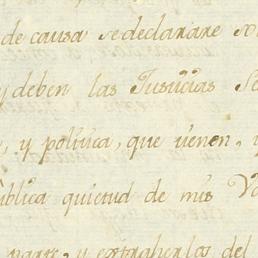 de causa se declarare
y deben las Justicias
, y politica, que vienen,
ública quietud de mis
y extraherlos del